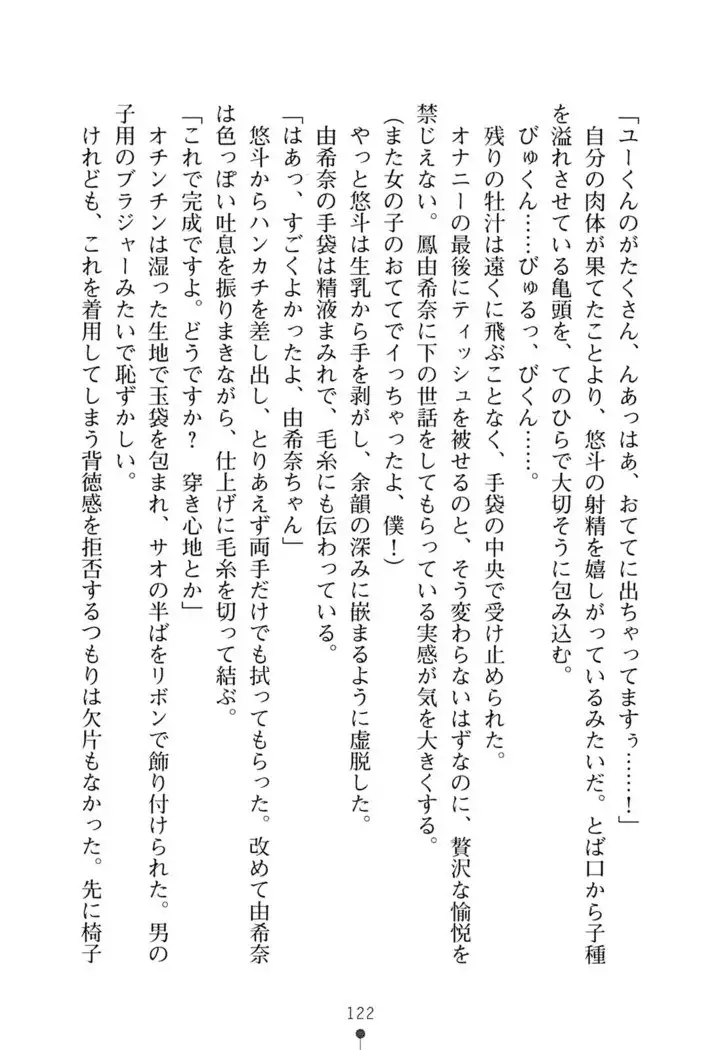 「ユーくんのがたくさん、んあっはぁ、おててに出ちゃってますぅ……！」
自分の肉体が果てたことより、悠斗の射精を嬉しがっているみたいだ。とば口から子種
を溢れさせている亀頭を、てのひらで大切そうに包み込む。
びゅくん……びゅるっ、びくん……。
残りの牡汁は遠くに飛ぶことなく、手袋の中央で受け止められた。
オナニーの最後にティッシュを被せるのと、そう変わらないはずなのに、贅沢な愉悦を
禁じえない。鳳由希奈に下の世話をしてもらっている実感が気を大きくする。
（また女の子のおててでイっちゃったよ、僕！）
やっと悠斗は生乳から手を剥がし、余韻の深みに嵌まるように虚脱した。
由希奈の手袋は精液まみれで、毛糸にも伝わっている。
「はあっ、すごくよかったよ、由希奈ちゃん」
悠斗からハンカチを差し出し、とりあえず両手だけでも拭ってもらった。改めて由希奈
は色っぽい吐息を振りまきながら、仕上げに毛糸を切って結ぶ。
「これで完成ですよ。どうですか？　穿き心地とか」
オチンチンは湿った生地で玉袋を包まれ、サオの半ばをリボンで飾り付けられた。男の
子用のブラジャーみたいで恥ずかしい。
けれども、これを着用してしまう背徳感を拒否するつもりは欠片もなかった。先に椅子
122